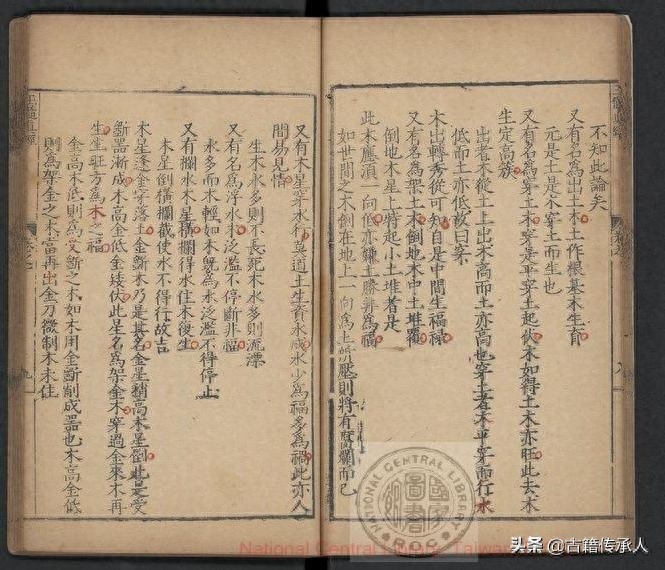 不知此論矣
又有名為出土木土作根基木生育
元是土是木穿土而生也
又有名為穿土木穿是平穿土起伏木如得土木亦旺此去木
生定高族
出者木從土上出木高而土亦高也穿土者木平穿而行水
低而土亦低故曰穿
木出轉秀從可知自是中間生福祿
又有名為架土木倒地木中土堆覆
倒地木星上特起小土堆者是
此木應須一向低亦鎌土勝并為福
如世間之木倒在地上一向為上所壓則將有腐爛而已
又有木星穿水行莫道土生資水成水少為福多為禍此亦人
間易見情
生木水多則不長死木水多則流漂
又有名為浮水木泛濫不停斷非福
水多而木輕如木旣為水泛濫不得停止
又有攔水木星橫攔得水住木後生
木星倒橫攔截使水不得行故吉
木星逢金穿落土金斷木乃是其名金星稍高木星劉此是受
斷器漸成木高金低金矮伏此星名為架金木穿過金來木再
生生旺方為木之福
金高木低則為受斷之木如木用金斷削成器也木高金低
則為架金之木當再出金刀微制木未住
九
八
NATIONAL CENTRAL LIBRARY
R.O.C.
國家圖書館
National Central Library, Taiwan
头条 @古籍传承人